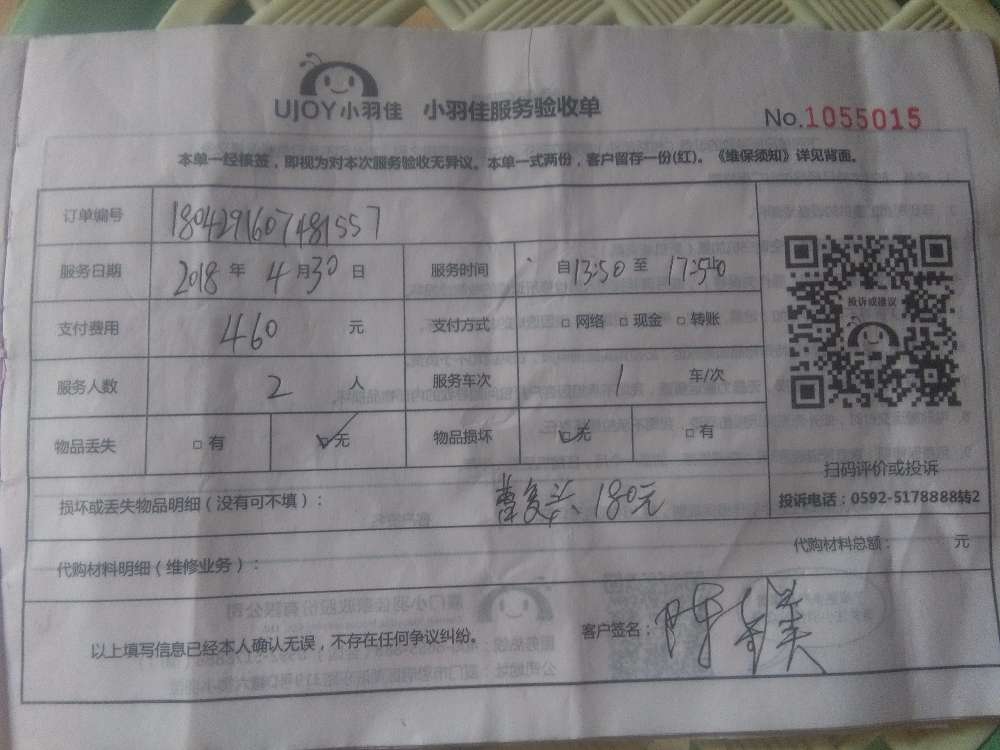 UJOY小羽佳 小羽佳服务验收单 No.1055015
本单一经核签，即视为对本次服务验收无异议。本单一式两份，客户留存一份(红)。《维保须知》详见背面。
订单编号 1804291607481557
服务日期 2018 年 4 月 30 日 服务时间 自 13:50 至 17:50
支付费用 460 元 支付方式 □ 网络 □ 现金 □ 转账
服务人数 2 人 服务车次 1 车/次
物品丢失 □ 有 ☑无 物品损坏 ☑无 □ 有
投诉或建议
扫码评价或投诉
投诉电话：0592-5178888转2
损坏或丢失物品明细（没有可不填）： 180元
代购材料明细（维修业务）： 代购材料总额： 元
以上填写信息已经本人确认无误，不存在任何争议纠纷。 客户签名： 陈 美